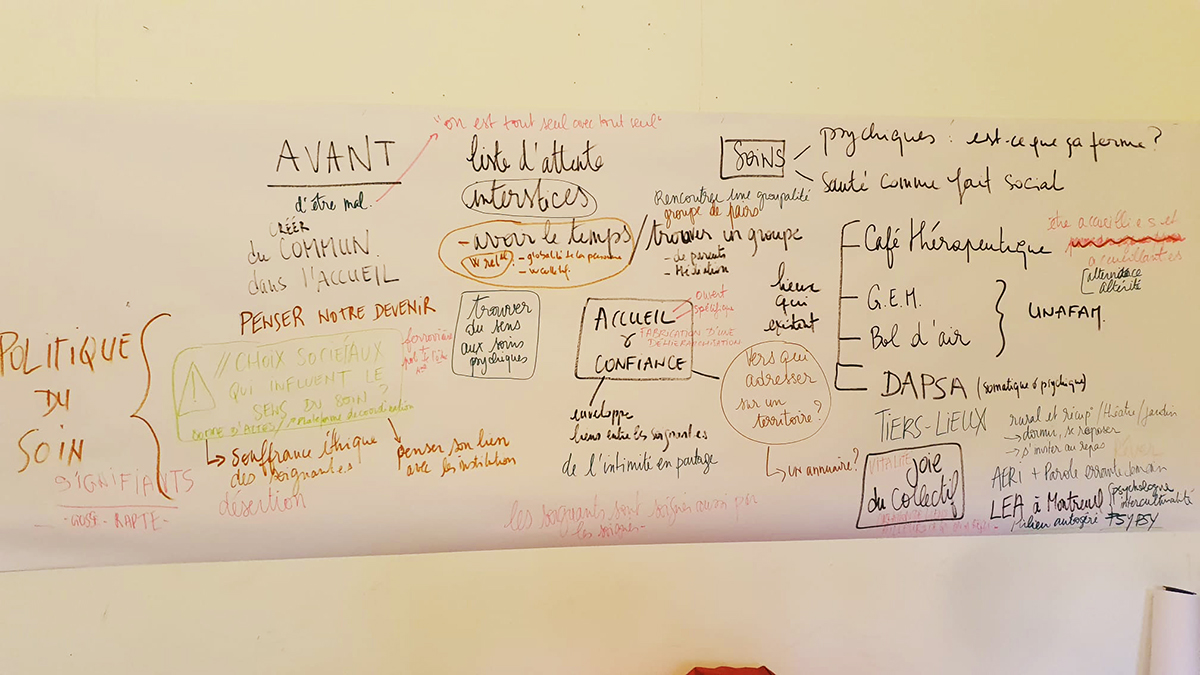 "on est tout seul avec tout seul"
AVANT
d'être mal.
CRÉER
du COMMUN
dans l'ACCUEIL
PENSER NOTRE DEVENIR
liste d'attente
interstices
- avoir le temps
- globalité de la personne
/ Rencontrer une groupalité
groupe de pairs
trouver un groupe
- de parents
- Médiation
SOINS
psychiques : est-ce que ça ferme ?
Santé comme fait social
Café thérapeutique
être accueilli·e·s et
accueillant·es
alternance
altérité
G.E.M.
Bol d'air
UNAFAM.
DAPSA (somatique & psychique)
lieux
qui
existent
POLITIQUE
DU
SOIN
SIGNIFIANTS
// CHOIX SOCIÉTAUX
QUI INFLUENT LE
SENS DU SOIN ?
↳ souffrance éthique
des soignant·es
désertion
penser son lien
avec les institution
trouver
du sens
aux soins
psychiques
ACCUEIL
&
CONFIANCE
ouvert
spécifique
FABRICATION D'UNE
enveloppe
liens entre les soignant·es
de l'intimité en partage
Vers qui
adresser
sur un
territoire ?
↳ un annuaire ?
TIERS-LIEUX
rural et récup / théâtre / jardin
→ dormir, se reposer
→ s'inviter au repas
VITALITÉ
joie
du collectif
AERI + Parole errante
LEA à Montreuil
psychologue
interculturalité
lieu autogéré PSYPSY
les soignants sont soignés aussi par
les soignés-